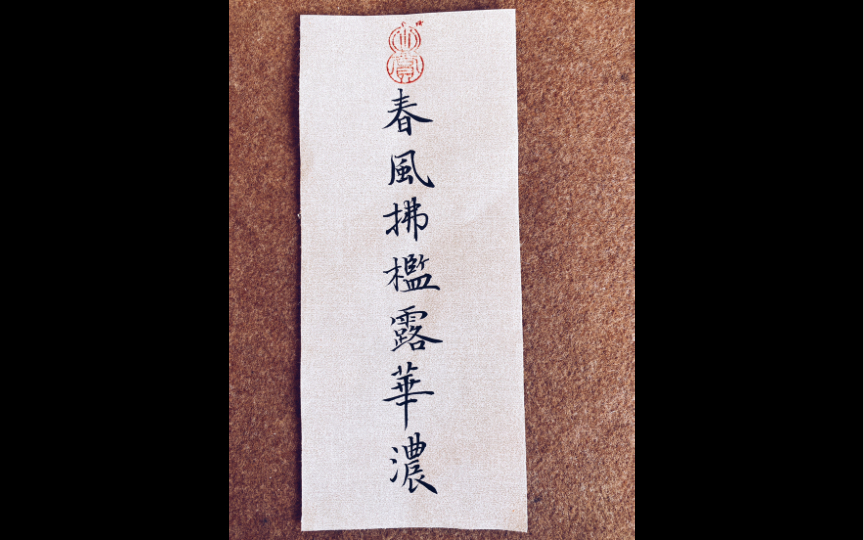 春風拂檻露華濃